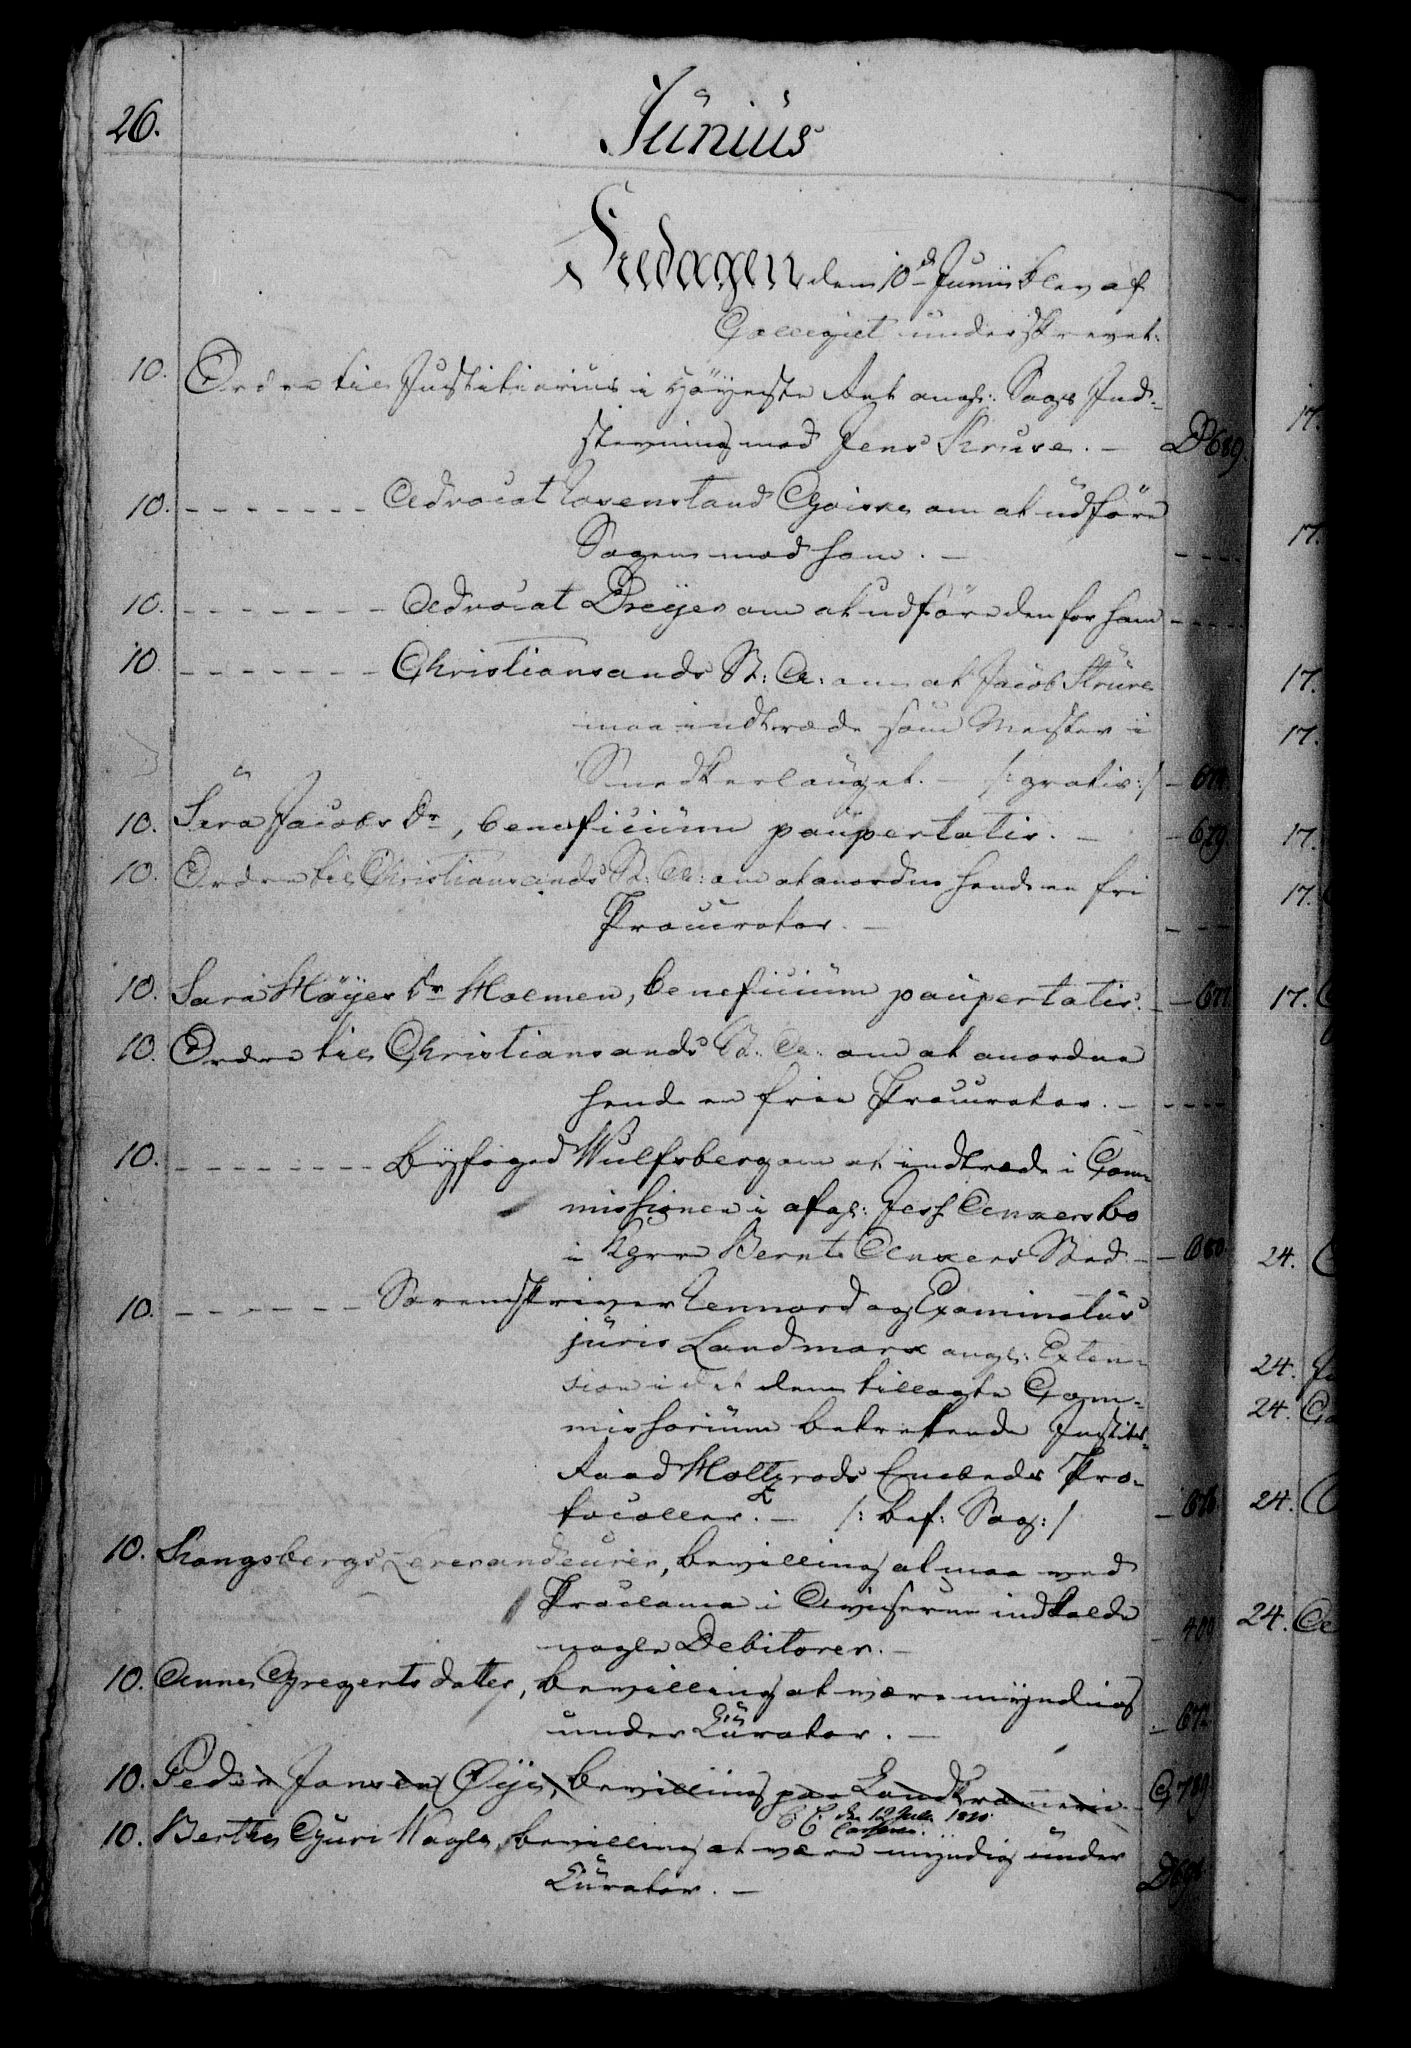 26.
Junius
Fredagen den 10de Junii blev af
Collegiet underskrevet:
10. Ordre til Justitiarius i Höÿeste Ret angl: Sags Ind-
stevning mod Jens Kruse. — D 689.
10. - - - - - - - Advocat Rosenstand Goiske om at udföre
Sagen mod ham. — - - - -
10. - - - - - - - Advocat Dreÿer om at udföre den for ham - - - -
10 - - - - - - - Christiansands St: A: om at Jacob Kruse
maa indtræde som Mester i
Snedkerlauget. — /: gratis :/ - 677
10. Sira Jacobs Dr, beneficium paupertatis. — - 679
10. Ordre til Christiansands St: A: om at anordne hende en fri
Procurator. — - - -
10. Sara Höÿer Dr Holmen, beneficium paupertatis. - 677
10. Ordre til Christiansands St: A: om at anordne
hende en frie Procurator. — - - - -
10. - - - - - - - Bÿfoged Wulfsberg om at indtræde i Com-
missionen i afg: Jess Ankers bo
i Kgrr Bernt Ankers Sted. — - 680
10. - - - - - - Sorenskriver Lennord og Examinatus
juris Landmark angl: Exten-
sion i det dem tillagte Com-
missorium betreffende Justits-
Raad Holtzrods Embeds Pro-
tocoller. — /: bef: Sag :/ - 676
10. Kongsbergs Leverandeurer, bevilling at maa ved
Proclama i Aviserne indkalde
nogle Debitorer. — - 400
10. Anne Gregerts datter, bevilling at være myndig
under Curator. — - 672
10. Peder Jansen Öÿe, bevilling paa Landkrameri. - G 789
den 12 Juli 1810.
10. Berthe Guri Nagle, bevilling at være mÿndig under
Curator. —
17.
17.
17.
17.
17.
17.
17.
24.
24.
24.
24.
24.